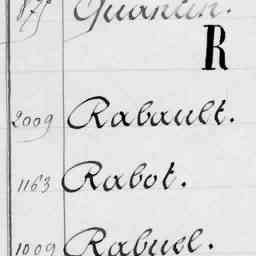 875 Quantin.
R
2009 Rabault.
1163 Rabot.
1009 Rabusl.